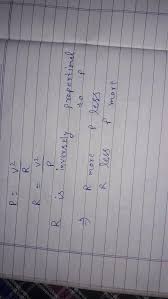 P = V²/R
R = V²/P
R is inversely proportional to P
⇒ R more P less
R less P more